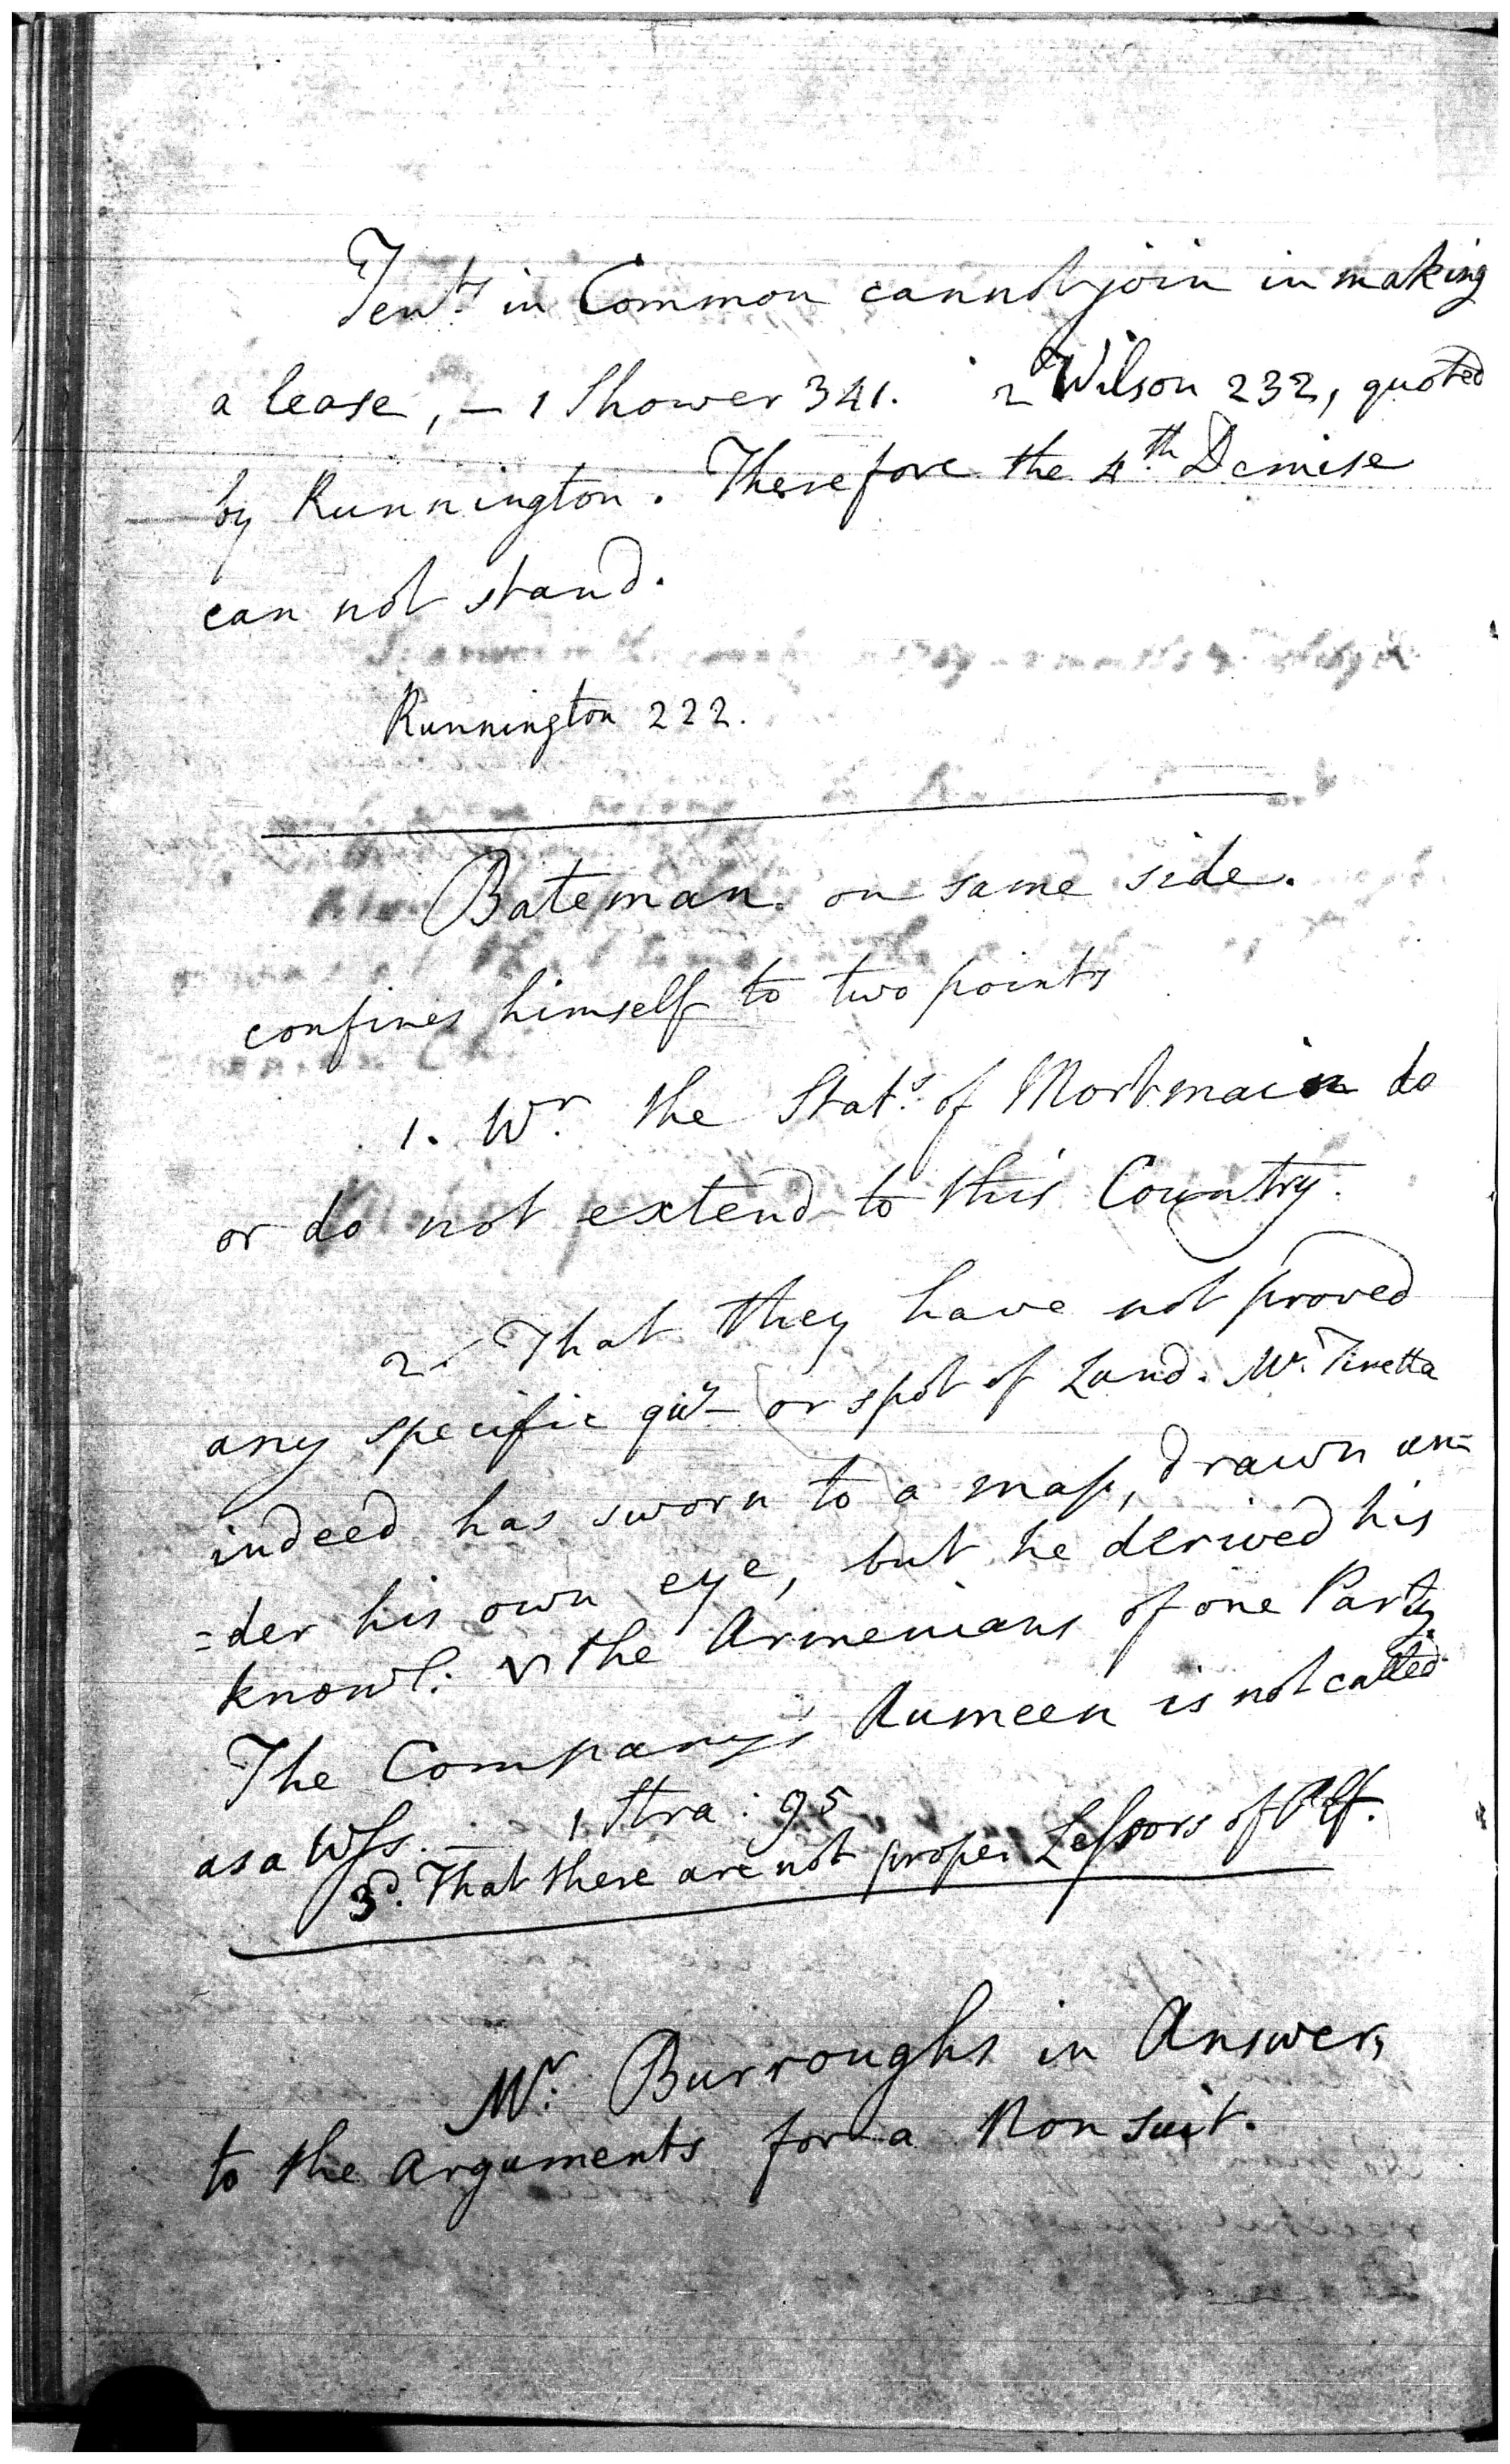 Tents in Common cannot join in making
a lease, – 1 Shower 341. 2 Wilson 232, quoted
by Runnington. Therefore the 4th Demise
can not stand.
Runnington 222.
Bateman. on same side.
confines himself to two points
1. Wr. the Stats. of Mortmain do
or do not extend to this Country.
2. That they have not proved
any specific or spot of Land. Mr. Tiretta
indeed has sworn to a map, drawn un=
=der his own eye, but he derived his
knowl: the Armenians of one Party.
The Company's Aumeen is not called
as a Wss. – 1 Stra: 95
3d. That there are not proper Lessors of Plf.
Mr. Burroughs in Answer,
to the Arguments for a Non suit.